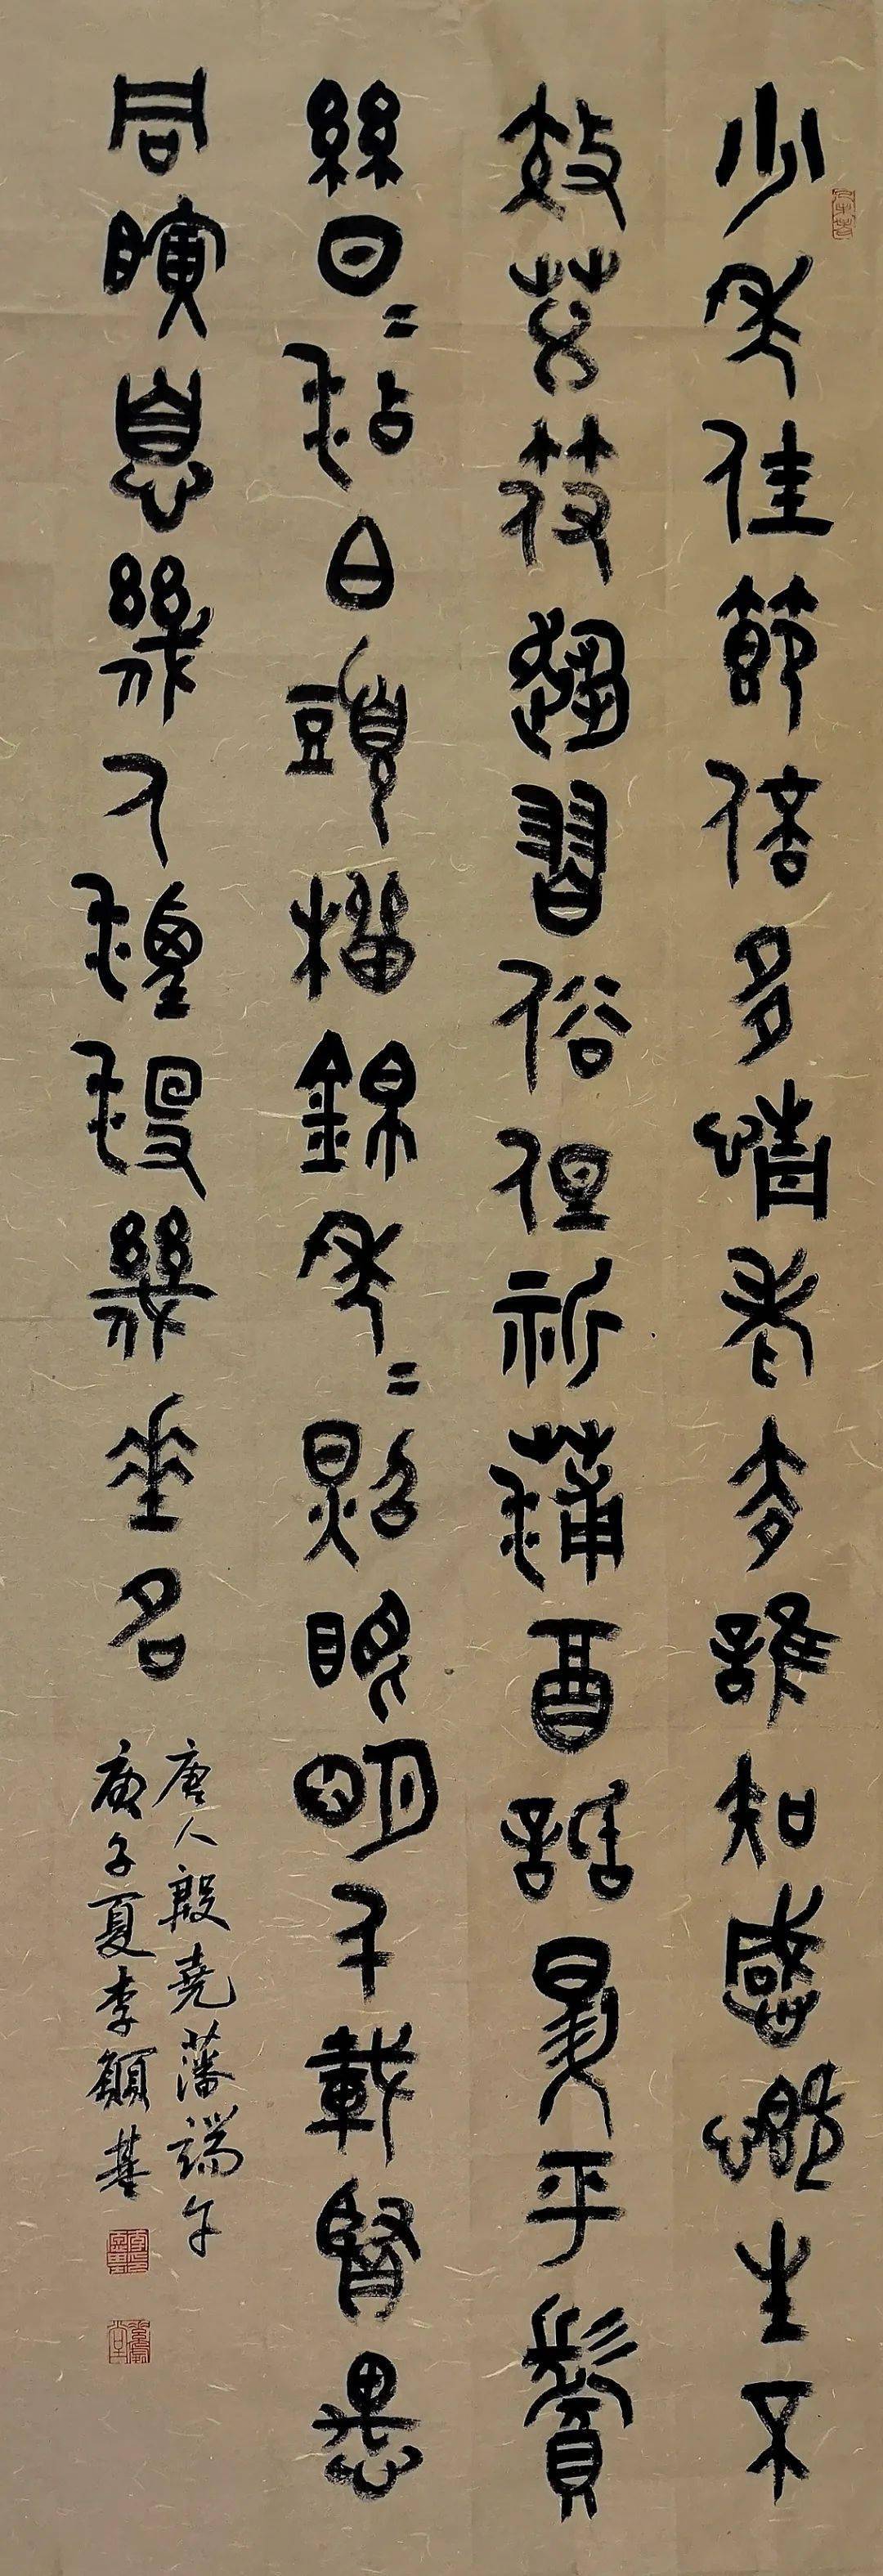 少年佳節倍多情老去誰知感慨生不
效艾符趨習俗但祈蒲酒話昇平鬢
絲日〻添白頭榴錦年〻照眼明千載賢愚
同瞬息幾人湮沒幾垂名
唐人殷堯藩端午
庚子夏李顛基